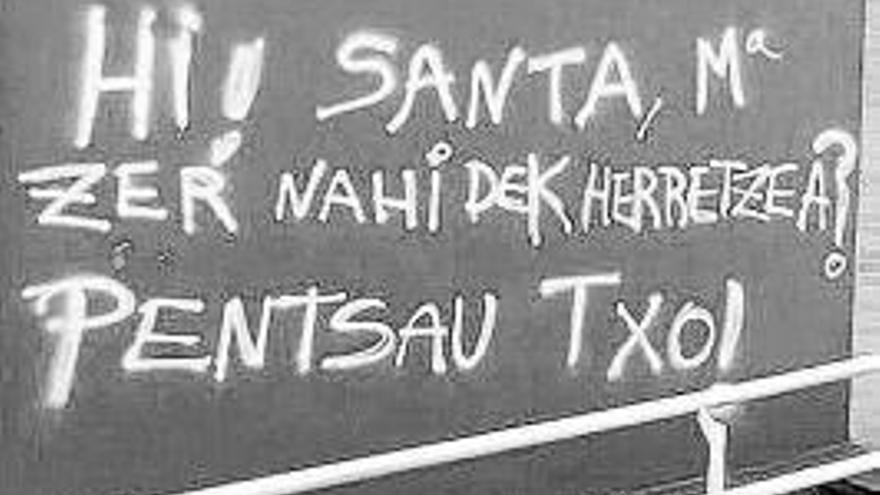 HiU SANTA, Mª
ZER NAHi DEK HERRETZEA?
PENTSAU TXOI